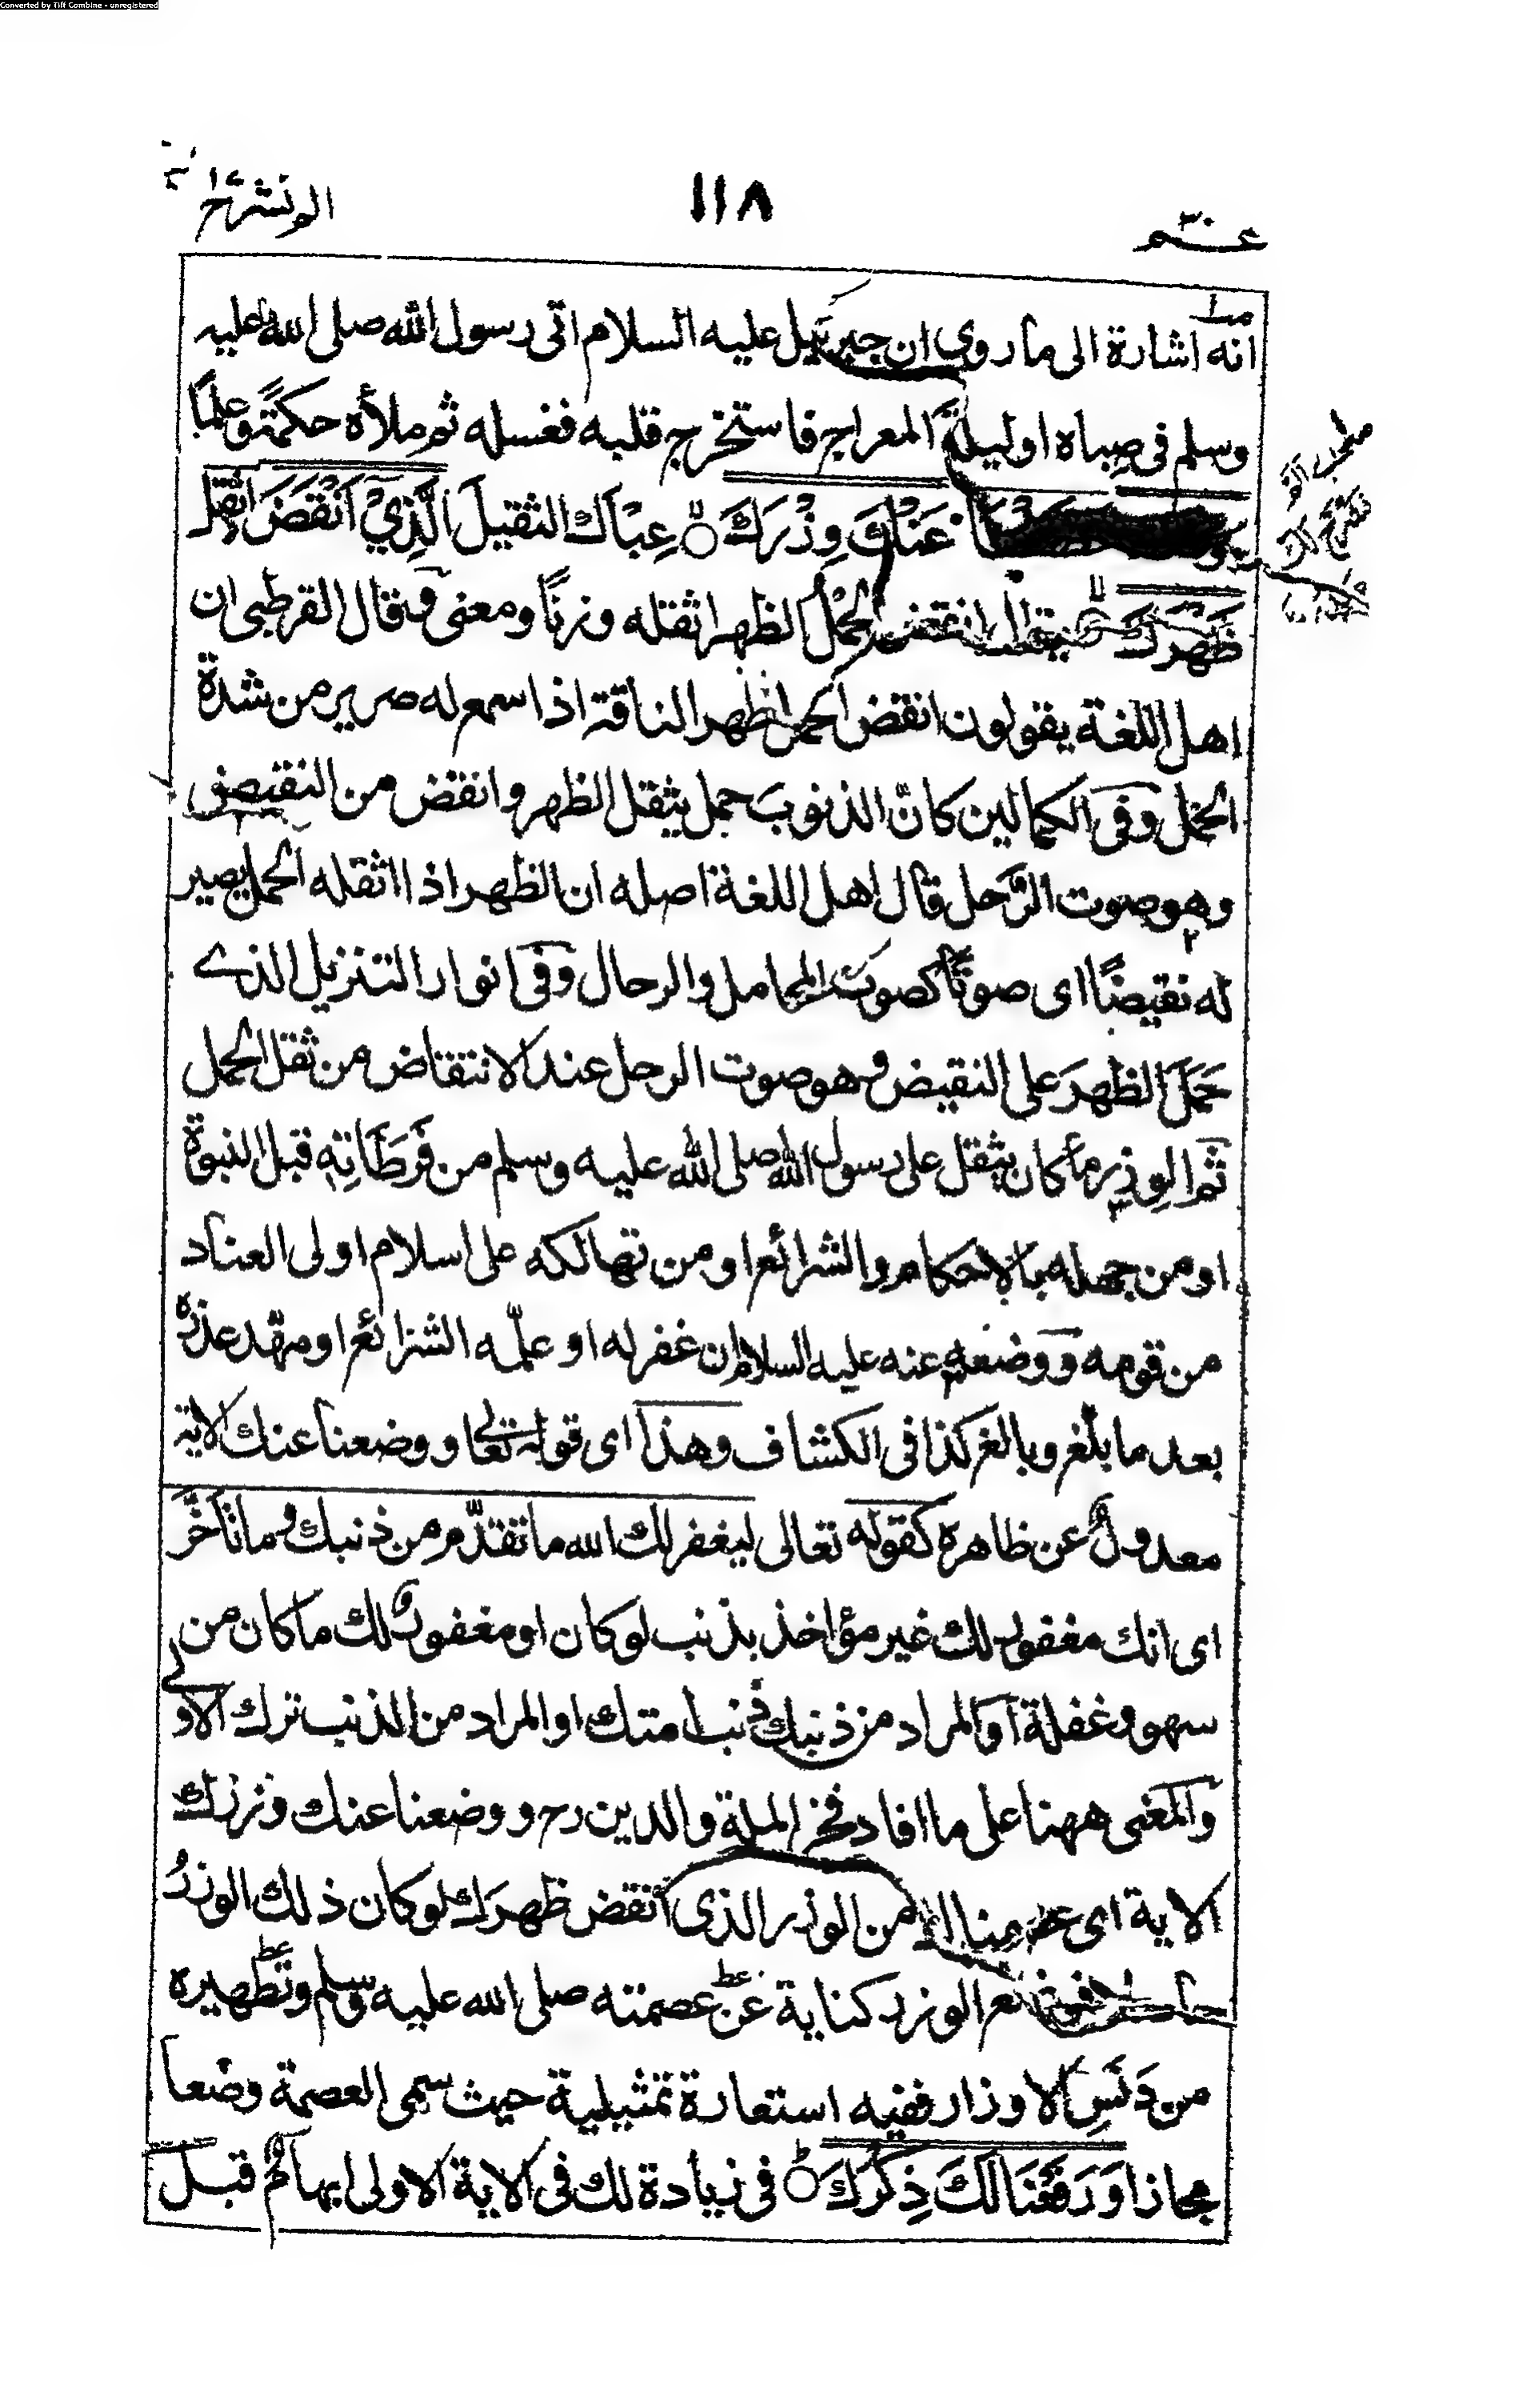 Converted by Tiff Combine - unregistered
عـــم ٣٠
١١٨
الم نشرح
انه اشارة الى ما روى ان جبرئيل عليه السلام اتى رسول الله صلى الله عليه
وسلم فى صباه او ليلة المعراج فاستخرج قلبه فغسله ثم ملأه حكمةً وعلمًا
عَنْكَ وِزْرَكَ عِبْأك الثقيلَ الَّذِيْٓ اَنْقَضَ اثقل
ظَهْرَكَ انقض الحِمْلُ الظهر اثقله وزنًا ومعنى وقال القرطبى ان
اهل اللغة يقولون انقض الحمل ظهر الناقة اذا سمع له صرير من شدة
الحمل وفى الكمالين كانّ الذنوب حمل يثقل الظهر وانقض من النقيض
وهو صوت الرَّحل قال اهل اللغة اصله ان الظهر اذا اثقله الحمل يصير
له نقيضًا اى صوتًا كصوت المحامل والرحال وفى انوار التنزيل الذى
حَمَلَ الظهرَ على النقيض وهو صوت الرحل عند الانتقاض من ثقل الحمل
ثم الوِزر ما كان يثقل على رسول الله صلى الله عليه وسلم من فَرَطَاتِهٖ قبل النبوة
او من جهله بالاحكام والشرائع او من تهالكه على اسلام اولى العناد
من قومه ووضعه عنه عليه السلام ان غفر له او علّمه الشرائع او مهّد عذره
بعد ما بلّغ وبالغ كذا فى الكشاف وهذا اى قوله تعالى ووضعنا عنك الاية
معدولٌ عن ظاهره كقوله تعالى ليغفر لك الله ما تقدّم من ذنبك وما تأخَّرَ
اى انك مغفور لك غير مؤاخذ بذنب لو كان او مغفورٌ لك ما كان من
سهو وغفلة او المراد من ذنبك ذنب امتك او المراد من الذنب ترك الاولى
والمعنى ههنا على ما افاد فخر الملة والدين رح ووضعنا عنك وزرك
الاية اى عصمناك من الوزر الذى انقض ظهرَك لو كان ذلك الوزرُ
الوزر كناية عن عصمته صلى الله عليه وسلم وتطهيره
من دَنَسِ الاوزار ففيه استعارة تمثيلية حيث سمى العصمة وضعا
مجازا وَرَفَعْنَا لَكَ ذِكْرَكَ فى زيادة لك فى الاية الاولى ابهامٌ قبل